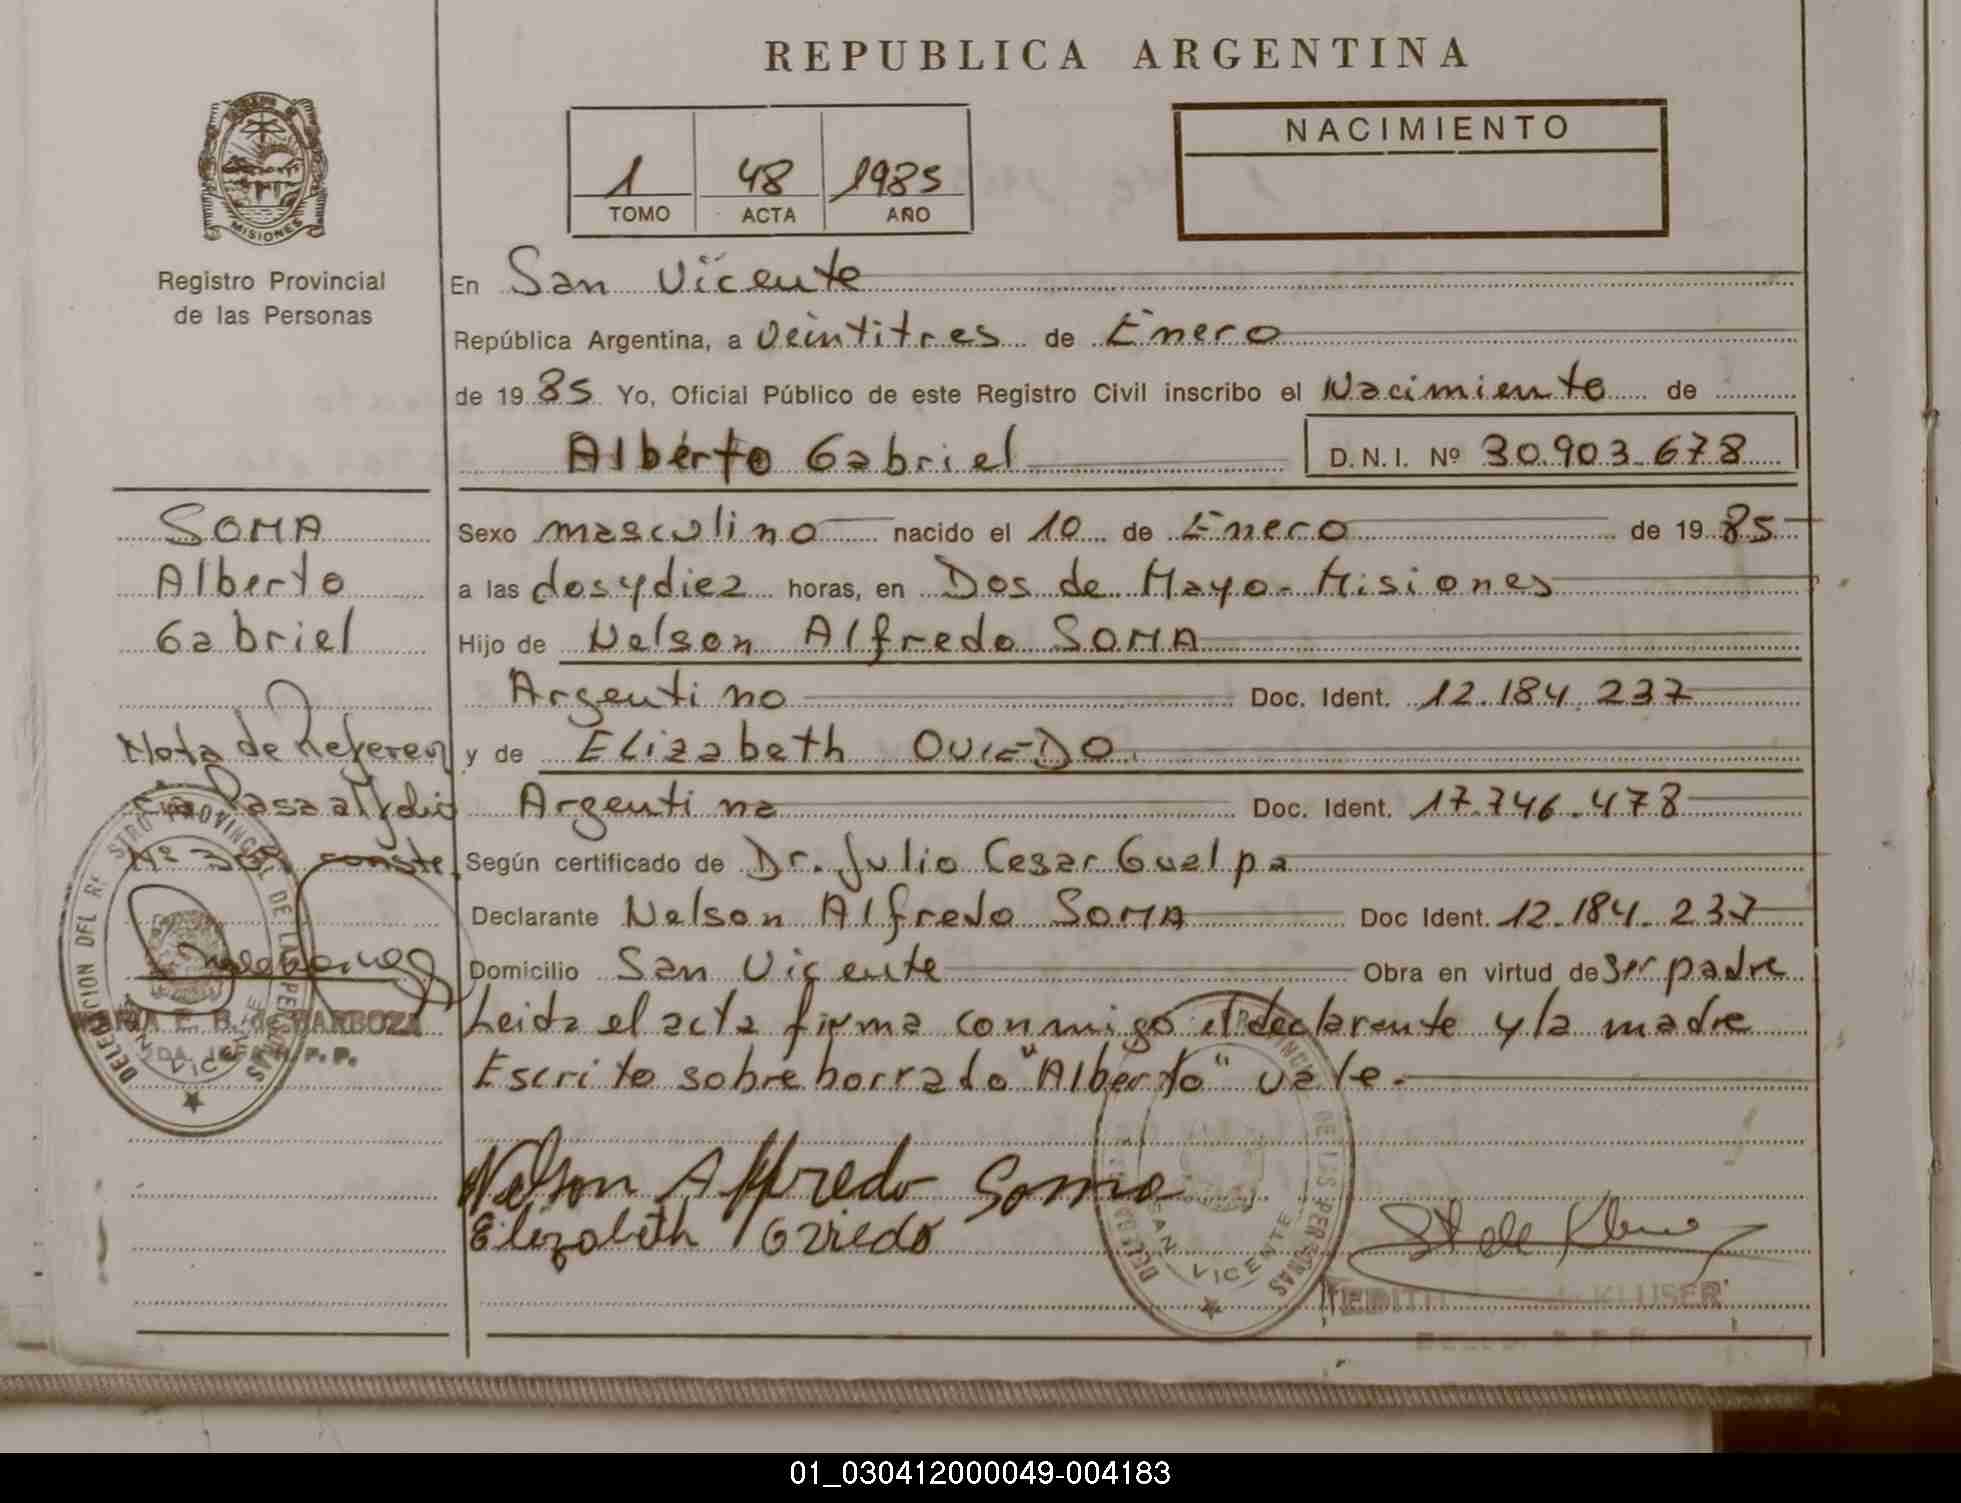 REPUBLICA ARGENTINA
NACIMIENTO
1 48 1985
TOMO ACTA AÑO
MISIONES
Registro Provincial
de las Personas
En San Vicente
República Argentina, a Veintitres de Enero
de 1985 Yo, Oficial Público de este Registro Civil inscribo el Nacimiento de
Alberto Gabriel D.N.I. Nº 30.903.678
SOMA
Alberto
Gabriel
Sexo masculino nacido el 10 de Enero de 1985
a las dos y diez horas, en Dos de Mayo - Misiones
Hijo de Nelson Alfredo SOMA
Argentino Doc. Ident. 12.184.237
y de Elizabeth OVIEDO.
Argentina Doc. Ident. 17.746.478
Según certificado de Dr. Julio Cesar Gualpa
Declarante Nelson Alfredo SOMA Doc Ident. 12.184.237
Domicilio San Vicente Obra en virtud de Ser padre
Leida el acta firma conmigo el declarante y la madre
Escrito sobre borrado "Alberto" vale.-
Nota de Referen
cia Pasa al folio
Nº conste.
DELEGACION DEL REGISTRO PROVINCIAL DE LAS PERSONAS
SAN VICENTE
E. B. de BARBOZA
2DA. JEFA R. P. P.
Nelson Alfredo Soma
Elizabeth Oviedo
DELEGACION PROVINCIAL DE LAS PERSONAS
SAN VICENTE
St de Kluser
EDITH de KLUSER
01_030412000049-004183